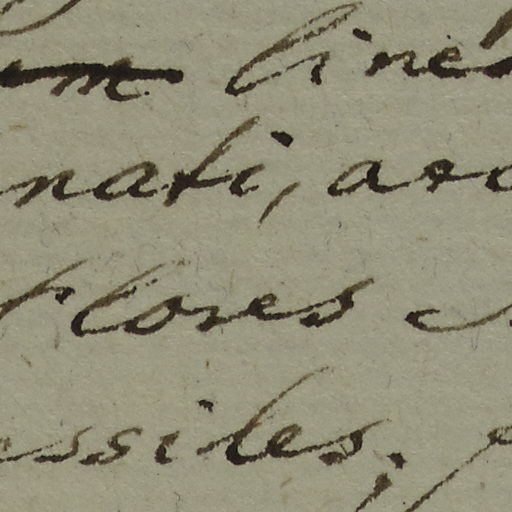 linea
nati, arc
Flores
essiles,